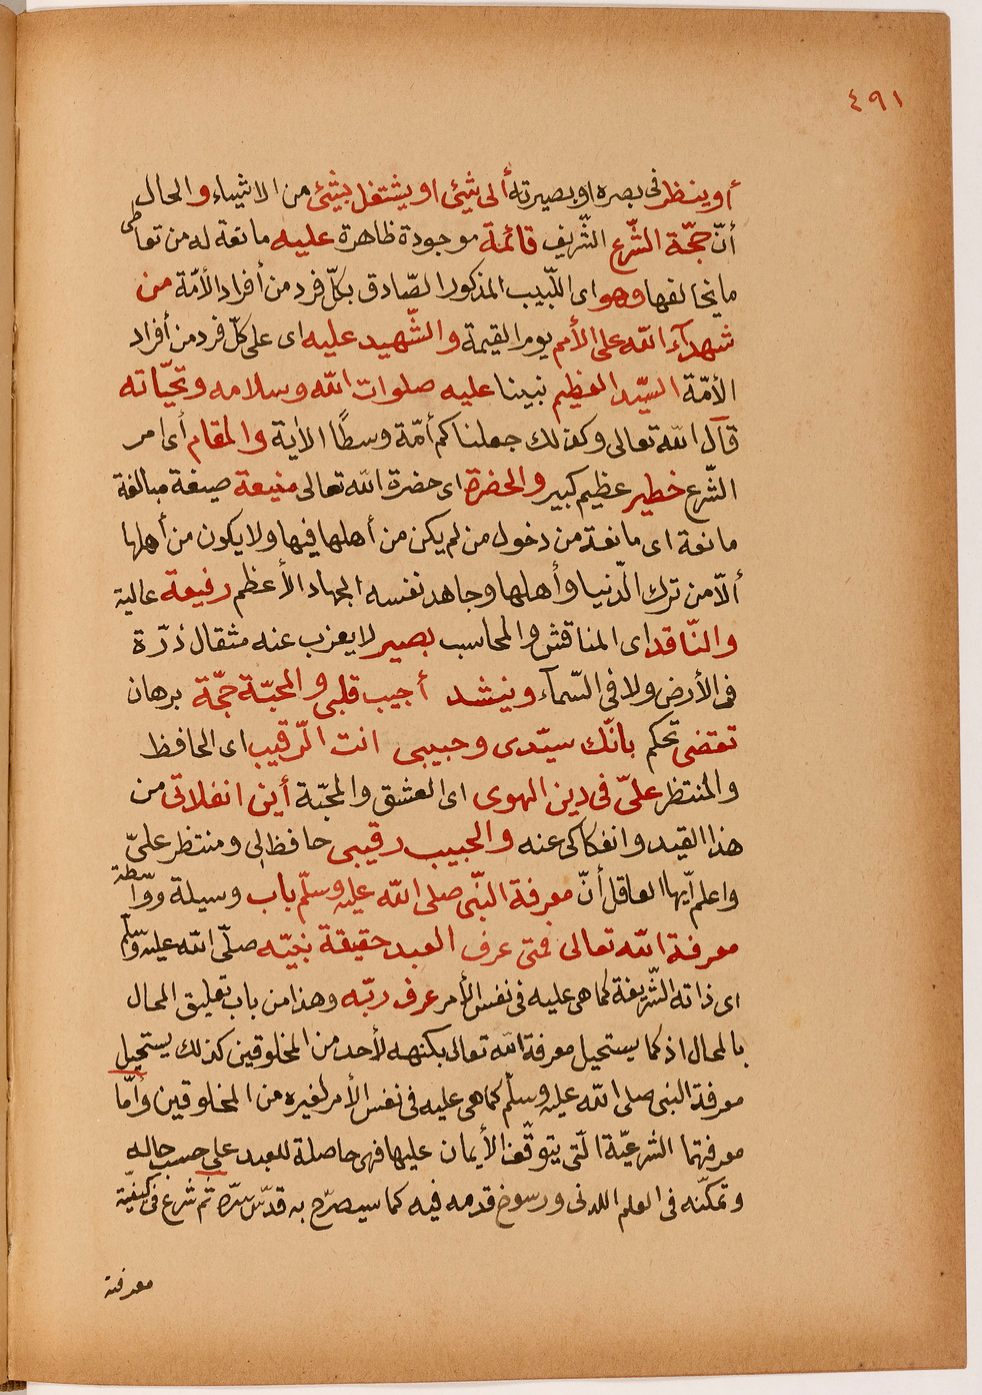 ٤٩١
أو ينظر فى بصره او بصيرته ألى شيئ او يشتغل بشيئ من الاشياء والحال
أنّ حجّة الشّرع الشّريف قائمة موجودة ظاهرة عليه مانعة له من تعاطى
ما يخالفها وهو اى اللّبيب المذكور الصّادق بكلّ فرد من أفراد الأمّة من
شهدآء الله على الأمم يوم القيمة والشّهيد عليه اى على كلّ فرد من أفراد
الأمّة السّيّد العظيم نبينا عليه صلوات الله وسلامه وتحيّاته
قآل الله تعالى وكذلك جعلناكم أمّة وسطًا الأية والمقام أى امر
الشّرع خطير عظيم كبير والحضرة اى حضرة الله تعالى منيعة صيغة مبالغة
مانعة اى مانعة من دخول من لم يكن من أهلها فيها ولا يكون من أهلها
ألّا من ترك الدّنيا وأهلها وجاهد نفسه الجهاد الأعظم رفيعة عالية
والنّاقد اى المناقش والمحاسب بصير لا يعزب عنه مثقال ذرّة
فى الأرض ولا فى السّمآء وينشد أجيب قلبى والمحبّة حجّة برهان
تقتضى تحكم بانّك سيّدى وحبيبى انت الرّقيب اى الحافظ
والمنتظر علىّ فى دين الهوى اى العشق والمحبّة أين انفلاتى من
هذا القيد وانفكاكى عنه والحبيب رقيبى حافظ لى ومنتظر علىّ
واعلم أيّها العاقل أنّ معرفة النّبى صلى الله عليه وسلّم باب وسيلة وواسطة
معرفة الله تعالى فمتى عرف العبد حقيقة نبيّه صلّى الله عليه وسلّم
اى ذاته الشّريفة كما هى عليه فى نفس الأمر عرف ربّه وهذا من باب تعليق المحال
بالمحال اذ كما يستحيل معرفة الله تعالى بكنهه لأحد من المخلوقين كذلك يستحيل
معرفة النبى صلى الله عليه وسلّم كما هى عليه فى نفس الأمر لغيره من المخلوقين وأمّا
معرفتها الشرعيّة الّتى يتوقّف الأيمان عليها فهى حاصلة للعبد على حسب حاله
وتمكّنه فى العلم اللدنى ورسوخ قدمه فيه كما سيصرّح به قدّس سرّه ثم شرع فى كيفيّة
معرفته